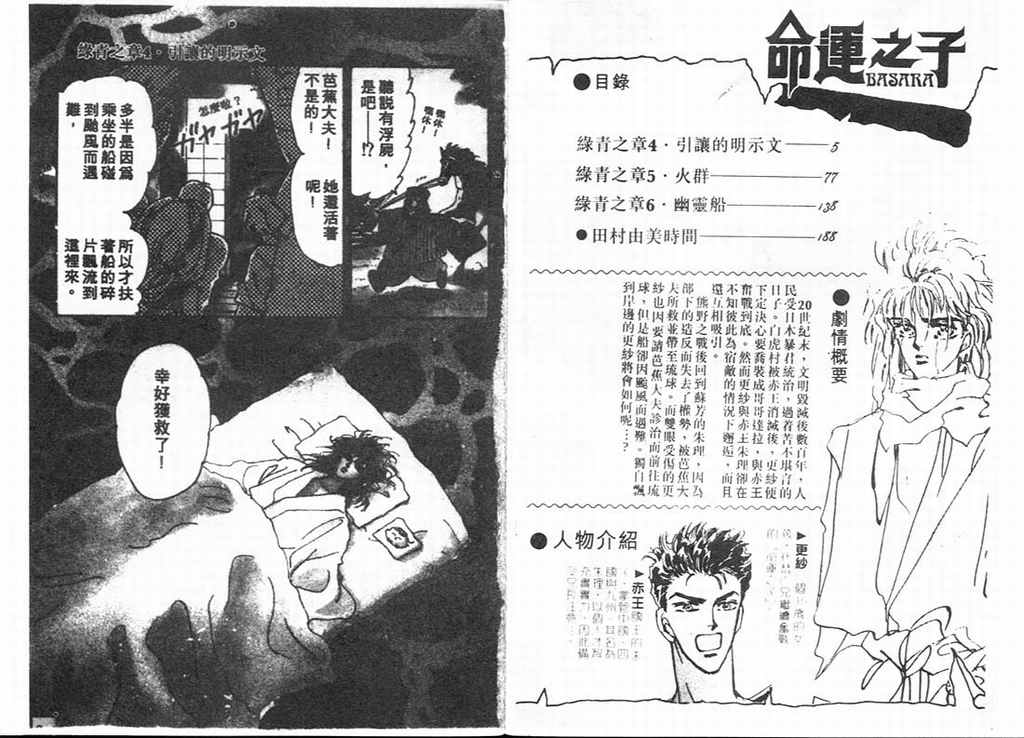 命運之子
BASARA
●目錄
綠青之章4·引讓的明示文——5
綠青之章5·火群——77
綠青之章6·幽靈船——138
●田村由美時間——188
●劇情概要
20世紀末，文明毀滅後數百年，人
民受日本暴君統治，過着苦不堪言的
日子。白虎村被赤王消滅後，更紗便
下定決心要喬裝成哥哥達拉，與赤王
奮戰到底。然而更紗與赤王朱理卻在
不知彼此為宿敵的情況下邂逅，而且
還互相吸引。
熊野之戰後回到蘇芳的朱理，因為
部下的造反而失去了權勢，被芭蕉大
夫所救並帶至琉球。而雙眼受傷的更
紗也因要請芭蕉大夫診治而前往琉
球，但是船卻因颱風而遇難。獨自飄
到岸邊的更紗將會如何呢…？
●人物介紹
▶更紗
▶赤王
綠青之章4·引讓的明示文
聽說有浮屍，
是吧——!?
芭蕉大夫！
不是的！
她還活著
呢！
怎麼啦？
ガヤガヤ
多半是因為
乘坐的船碰
到颱風而遇
難，
所以才扶
著船的碎
片飄流到
這裡來。
幸好獲救了！